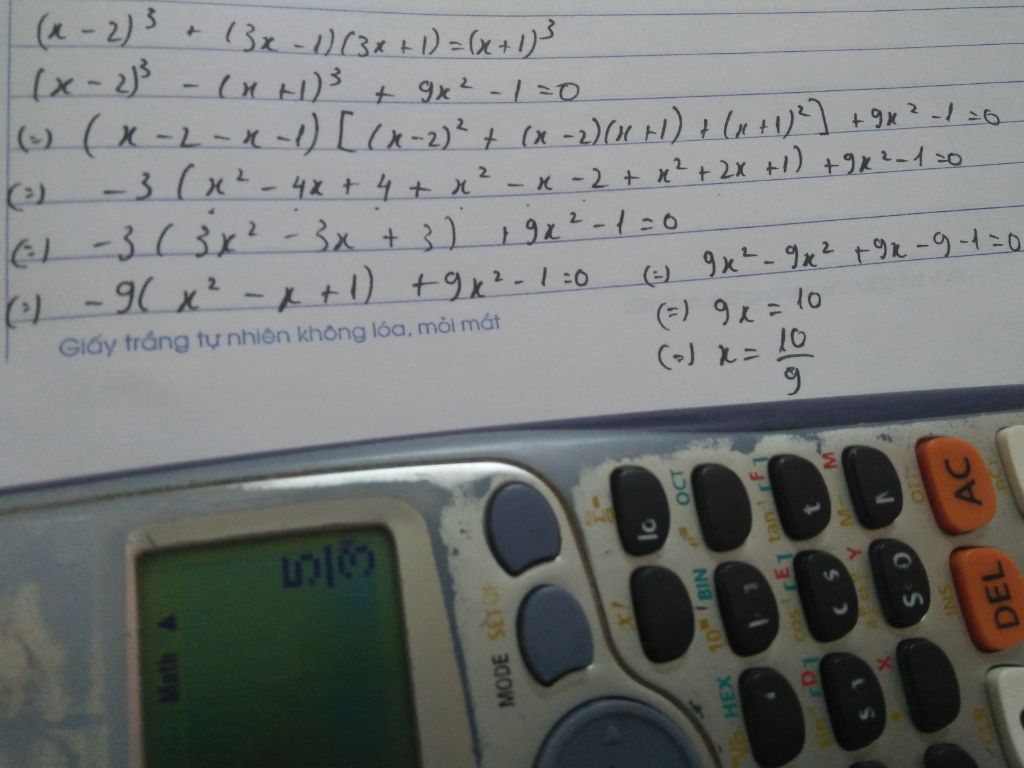 (x - 2)³ + (3x - 1)(3x + 1) = (x + 1)³
(x - 2)³ - (x + 1)³ + 9x² - 1 = 0
(=) (x - 2 - x - 1) [(x - 2)² + (x - 2)(x + 1) + (x + 1)²] + 9x² - 1 = 0
(=) -3 (x² - 4x + 4 + x² - x - 2 + x² + 2x + 1) + 9x² - 1 = 0
(=) -3 (3x² - 3x + 3) + 9x² - 1 = 0
(=) -9( x² - x + 1) + 9x² - 1 = 0
(=) 9x² - 9x² + 9x - 9 - 1 = 0
(=) 9x = 10
(=) x = 10/9
Giấy trắng tự nhiên không lóa, mỏi mắt
Math ▲
MODE
SET UP
x!
OCT
BIN
HEX
[F]
[E]
[D]
tan⁻¹
M
Y
X
OFF
AC
INS
DEL
CLR